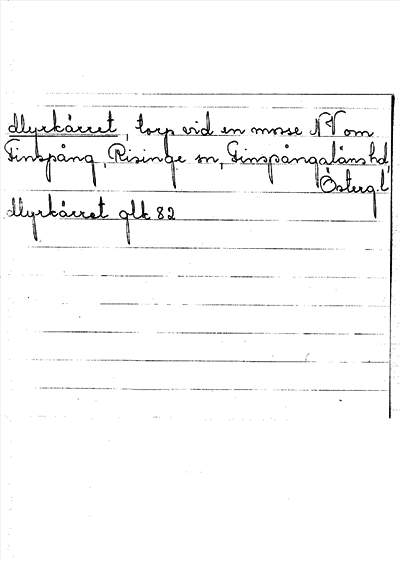 Myrkärret, torp vid en mosse NV om
Finspång, Risinge sn, Finspångaläns hd,
Östergl
Myrkärret glk 82